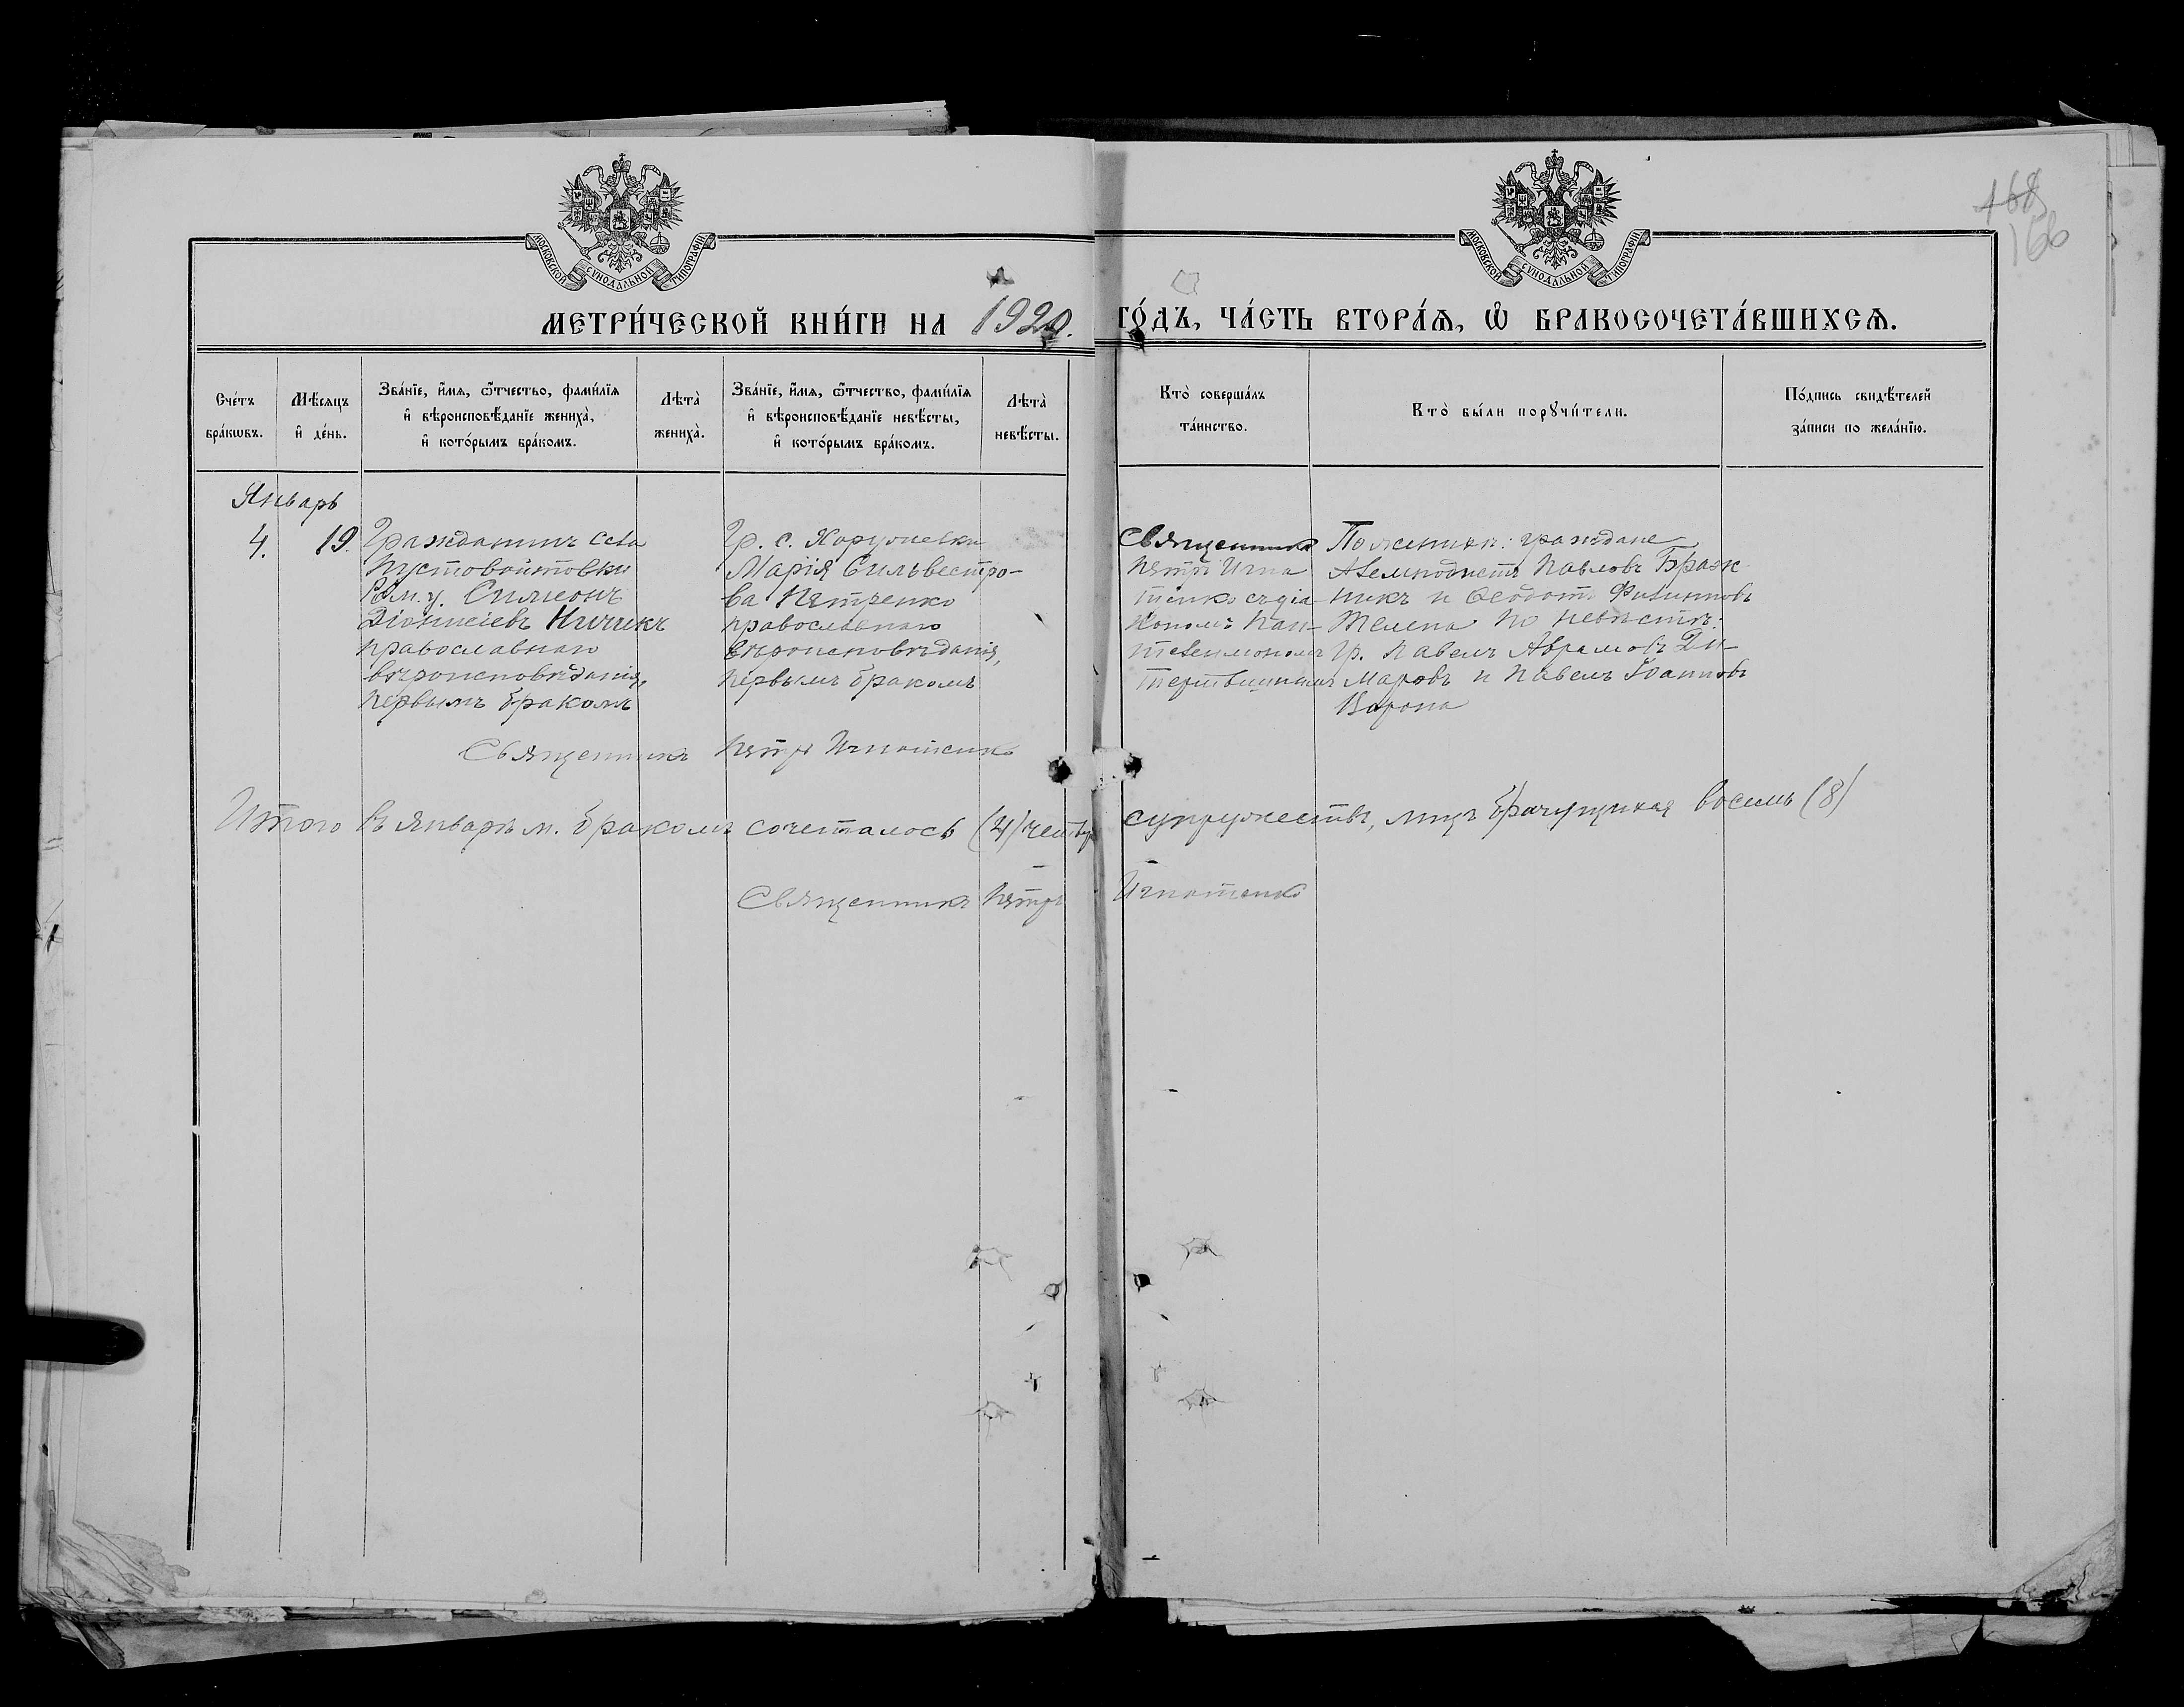 168
166
МОСКОВСКОЙ СѴНОДАЛЬНОЙ ТИПОГРАФІИ
МОСКОВСКОЙ СѴНОДАЛЬНОЙ ТИПОГРАФІИ
МЕТРИ́ЧЕСКОЙ КНИ́ГИ НА 1920. ГО́ДЪ, ЧА́СТЬ ВТОРА́Ѧ, Ѡ҆ БРАКОСОЧЕТА́ВШИХСѦ.
Сче́тъ
бра́кѡвъ.
Мѣ́сяцъ
и҆ де́нь.
Зва́нїе, и҆́мя, ѻ҆́тчество, фами́лїя
и҆ вѣроисповѣ́данїе жениха̀,
и҆ кото́рымъ бра́комъ.
Лѣта̀
жениха̀.
Зва́нїе, и҆́мя, ѻ҆́тчество, фами́лїя
и҆ вѣроисповѣ́данїе невѣ́сты,
и҆ кото́рымъ бра́комъ.
Лѣта̀
невѣ́сты.
Кто̀ соверша́лъ
та́инство.
Кто̀ бы́ли порꙋчи́тели.
По́дпись свидѣ́телей
за́писи по жела́нїю.
Январь
4.
19.
Гражданинъ села
Пустовойтовки
Ром. у. Симеонъ
Діонисіевъ Ничикъ
православнаго
вѣроисповѣданія,
первымъ бракомъ
Гр. с.
Марія Сильвестро-
ва Петренко
православнаго
вѣроисповѣданія,
первымъ бракомъ
Священникъ
Петръ Игна
тенко съ діа-
кономъ Пан-
телеимономъ
По женихѣ: граждане
Павловъ Браж-
никъ и Ѳеодотъ Филипповъ
По невѣстѣ:
Гр. Павелъ Аврамовъ Ди-
маровъ и Павелъ Іоанновъ
Ворона
Священникъ Петръ Игнатенко
Итого въ январѣ м. бракомъ сочеталось (4) четыр супружествъ, лицъ брачущихся восемь (8)
Священникъ Петръ Игнатенко